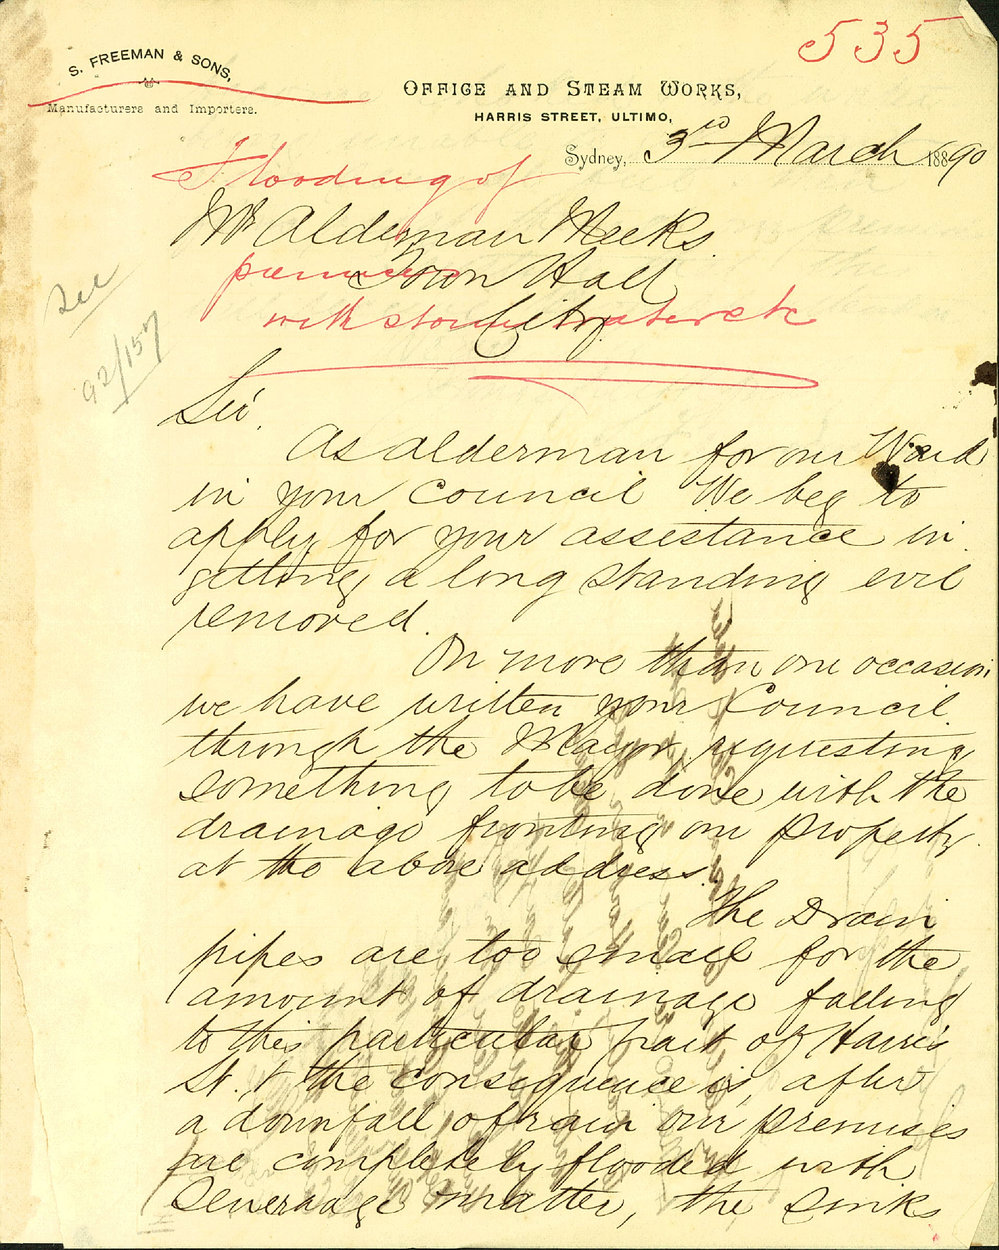 535
S. FREEMAN & SONS,
Manufacturers and Importers.
OFFICE AND STEAM WORKS,
HARRIS STREET, ULTIMO,
Sydney, 3rd March 18890
Flooding of
Mr Alderman Meeks
premises
Town Hall
with storm water etc
City
See
92/157
Sir,
As alderman for our Ward
in your Council We beg to
apply for your assestance in
getting a long standing evil
removed.
On more than one occasion
we have written your Council
through the Mayor, requesting
something to be done with the
drainage fronting our property
at the above address.
The Drain
pipes are too small for the
amount of drainage falling
to this particular part of Harris
St. & the consequence is, after
a downfall of rain our premises
are completely flooded with
sewerage matter, the sinks